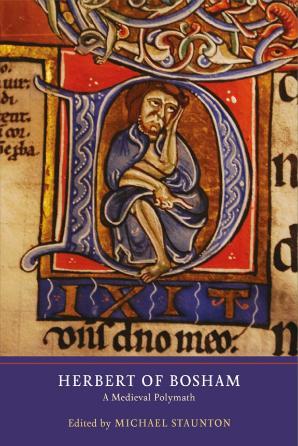 D
IXIT
dn̄s dn̄o meo:
HERBERT OF BOSHAM
A Medieval Polymath
Edited by MICHAEL STAUNTON